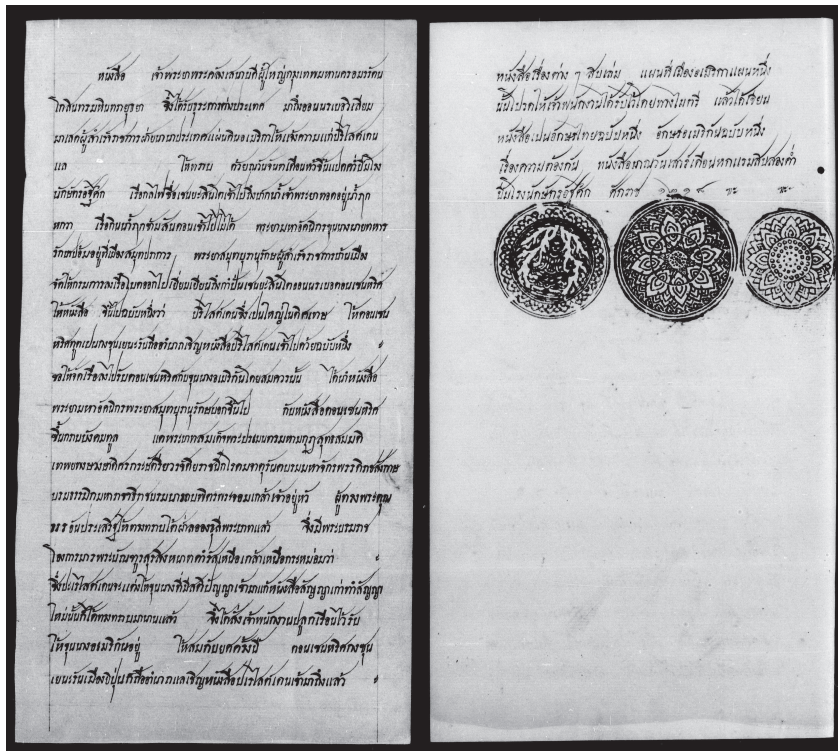 หนังสือ เจ้าพระยาพระคลังเสนาบดีผู้ใหญ่กรุงเทพมหานครอมรรัตน
โกสินทรมหินทรายุธยา ซึ่งได้ การต่างประเทศ มาถึงออนนระเบอวิลเลียม
มาเลคผู้สำเรจ์ราชการฝ่ายนานาประเทศแผ่นดินอเมริกาให้แจ้งความแก่ปริไสดเดน
แล ให้ทราบ ด้วยวันจันทเดือนห้าขึ้นแปดค่ำปีมโรง
นักษัตรอัฐศก เรือกลไฟชื่อเซนยะสินโตเข้าไปถึงปากน้ำเจ้าพระยาทอดอยู่น้ำฦก
หกวา เรือกินน้ำฦกข้ามสันดอนเข้าไปไม่ได้ พระยามหาอัคนิกรขุนนางนายทหาร
รักษาป้อมอยู่ที่เมืองสมุทปราการ พระยาสมุทบุรานุรักษผู้สำเรจ์ราชการบ้านเมือง
จัดให้กรมการลงเรือไบออกไปเยี่ยมเยียนถึงกำปั่นเซนยะสินโตออนนระเบอตอนเซนหริศ
ให้หนังสือ ขึ้นไปฉบับหนึ่งว่า ปริไสดเดนซึ่งเปนใหญ่ในดิศเทษ ให้ตอนเซน
หริศทูตเปนกงซุนเยเนราลถืออำนาทเจิญหนังสือปริไสดเดนเข้าไปด้วยฉบับหนึ่ง ฯ
ขอให้จัดเรือลงไปรับตอนเซนหริศกับขุนนางอเมริกันโดยสมควรนั้น ได้นำหนังสือ
พระยามหาอัคนิกรพระยาสมุทบุรานุรักษบอกขึ้นไป กับหนังสือตอนเซนหริศ
ขึ้นกราบบังคมทูล แดพระบาทสมเด็จพระปรเมนทรมหามกุฏ สุทธสมมติ
เทพยพงษวงษาดิศรกระษัตริย์วรขัติยราชนิโรดมจาตุรันตบรมมหาจักรพรรดิราชสังกาษ
บรมธรรมิกมหาราชาธิราชบรมนารถบพิตรพระจอมเกล้าเจ้าอยู่หัว ผู้ทรงพระคุณ
อันประเสริฐให้ทรงทราบใต้ฝ่าลอองธุลีพระบาทแล้ว จึ่งมีพระบรมราช
โองการมารพระบัณฑูรสุรสิงหนาทดำรัสเหนือเกล้าเหนือกระหม่อมว่า ฯ
ซึ่งปริไสดเดนจะแต่งให้ขุนนางที่มีสติปัญญาเข้ามาแก้หนังสือสัญญาเก่าทำสัญญา
ใหม่นั้นก็ได้ทรงทราบมานานแล้ว จึ่งได้สั่งเจ้าพนักงานปลูกเรือนไว้รับ
ให้ขุนนางอเมริกันอยู่ ให้สมกับยศ ตอนเซนหริศกงซุน
เยเนราลเมืองยี่ปุ่น ถืออำนาทแลเจิญหนังสือปริไสดเดนเข้ามาถึงแล้ว ฯ
หนังสือเรื่องต่าง ๆ สิบเล่ม แผนที่เมืองอะเมริกาแผนหนึ่ง
นั้นโปรดให้เจ้าพนักงานได้รับไว้โดยทางไมตรี แล้วได้เรียน
หนังสือเปนอักษรไทยฉบับหนึ่ง อักษรอเมริกันฉบับหนึ่ง
เรื่องความต้องกัน หนังสือมาณวันเสาร์เดือนหกแรมสิบสองค่ำ
ปีมโรงนักษัตรอัฐศก ศักราช ๑๒๑๘ ๚ะ ๚ะ